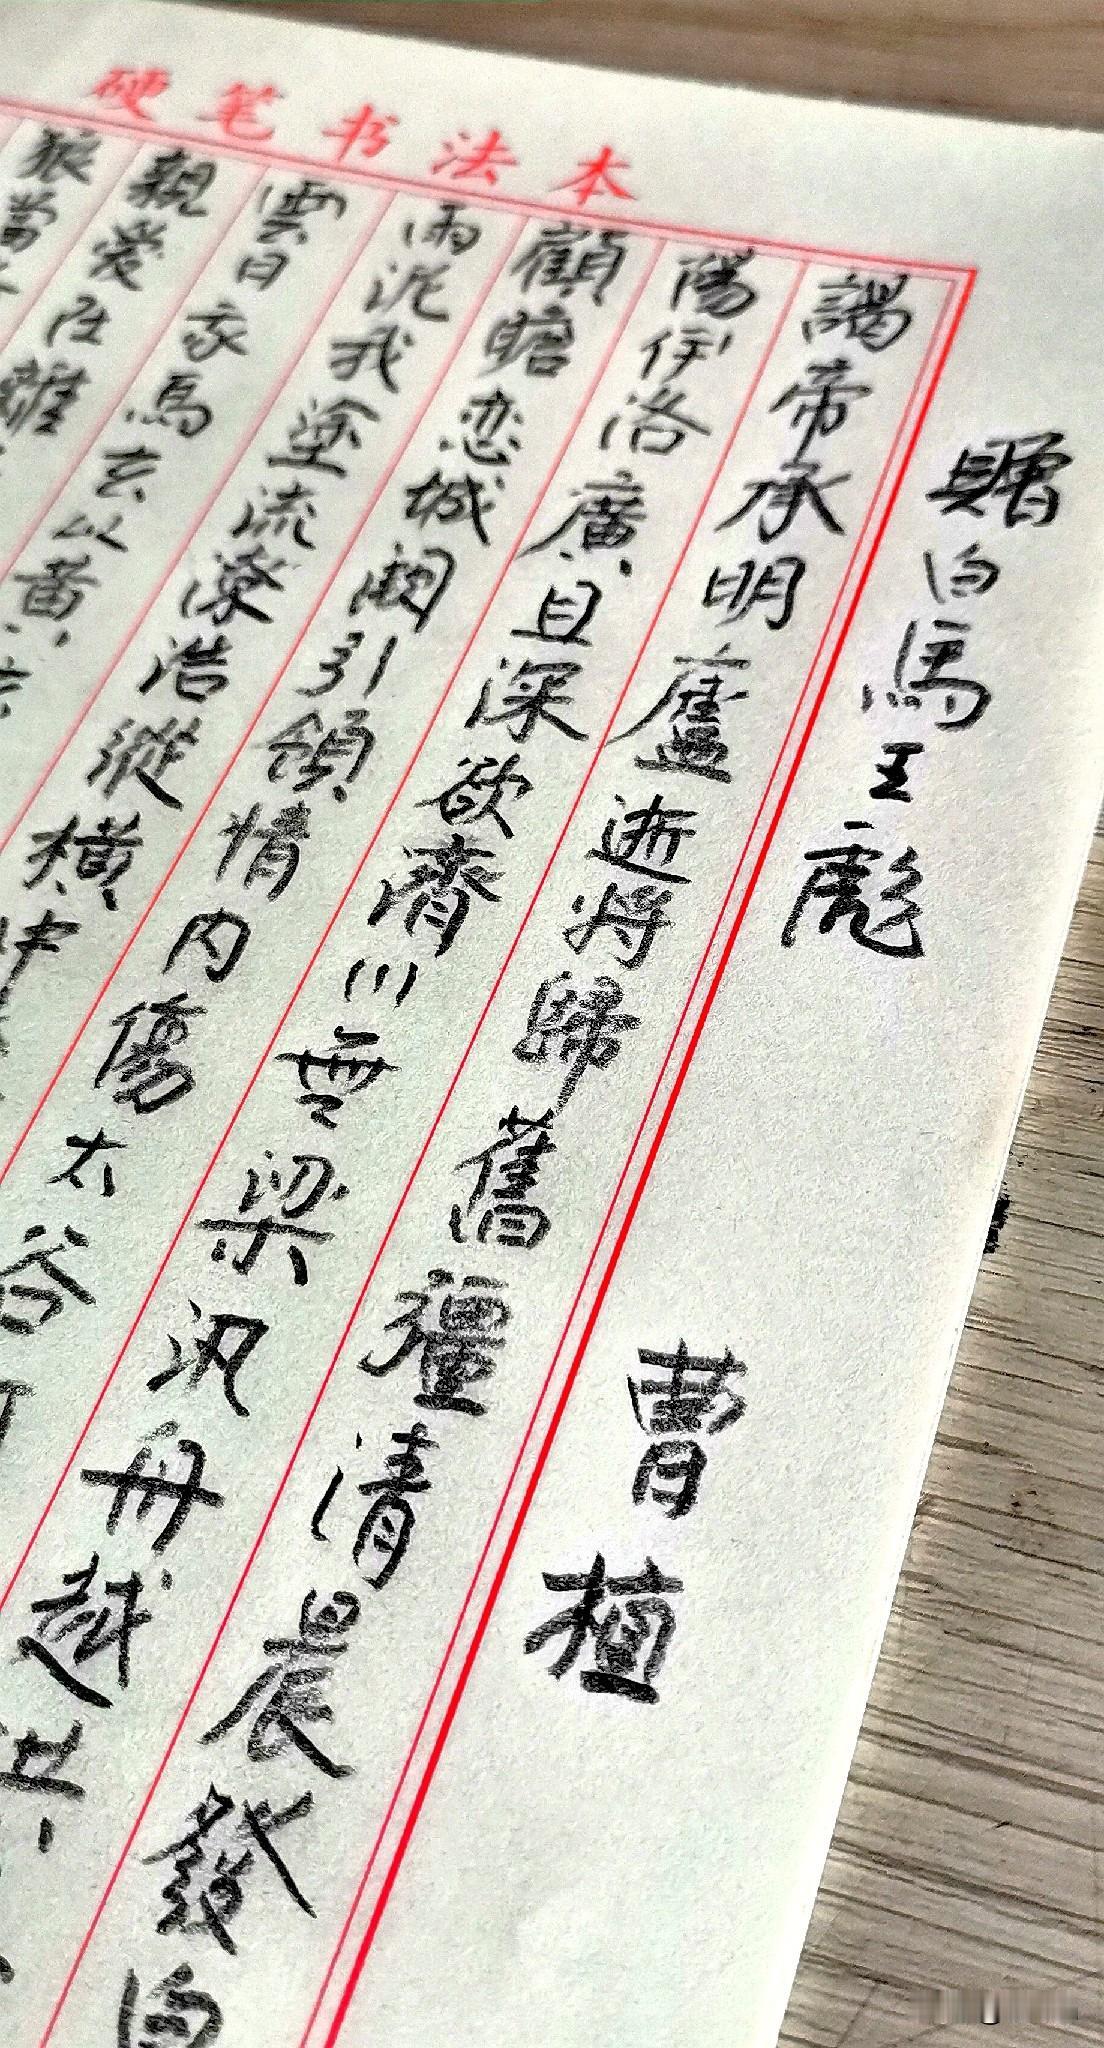 硬笔书法本
贈白馬王彪 曹植
謁帝承明廬逝將歸舊疆清晨發
陽伊洛廣且深欲濟川無梁汎舟越洪
顧瞻恋城闕引領情内傷太谷
雨泥我塗流潦浩縱橫中
雲日我馬玄以黃玄
親愛在離
狼當